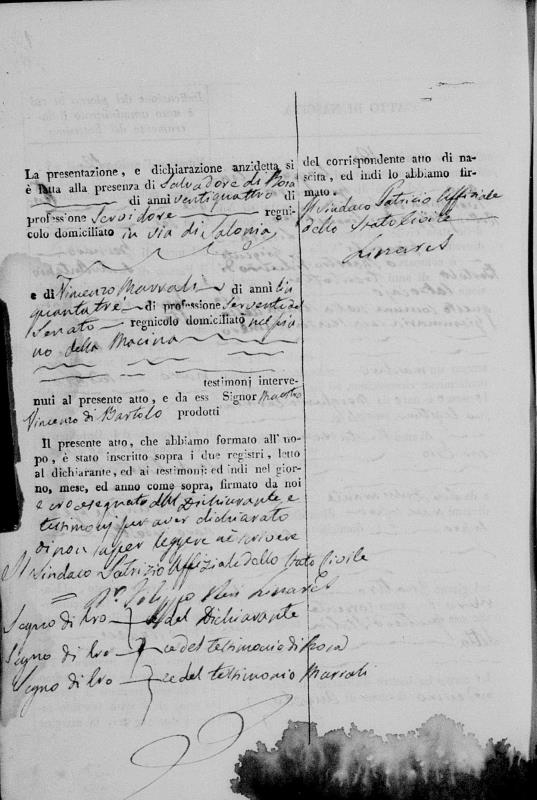 La presentazione, e dichiarazione anzidetta si
è fatta alla presenza di Salvadore di Rosa
di anni ventiquattro di
professione Servidore regni-
colo domiciliato in via di
e di Vincenzo Marrali di anni cin
quantatre di professione Servente del
Senato regnicolo domiciliato nel pia
no della
testimonj interve-
nuti al presente atto, e da ess Signor Maestro
Vincenzo di Bartolo prodotti
Il presente atto, che abbiamo formato all'uo-
po, è stato inscritto sopra i due registri, letto
al dichiarante, ed ai testimonj: ed indi nel gior-
no, mese, ed anno come sopra, firmato da noi
e crocesegnato dal Dichiarante e
testimonj per aver dichiarato
di non saper leggere ne scrivere
Il Sindaco Patrizio Uffiziale dello Stato Civile
Filippo Linares
Segno di Cro ce del Dichiarante
Segno di Cro ce del testimonio di Rosa
Segno di Cro ce del testimonio Marrali
del corrispondente atto di na-
scita, ed indi lo abbiamo fir-
mato.
Il Sindaco Patrizio Uffiziale
dello Stato Civile
Linares